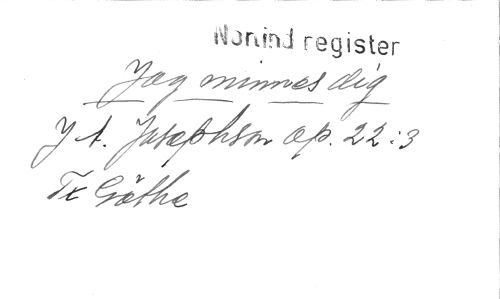 Nonind register
Jag minnes dig
J A. Josephson op. 22:3
Tx Göthe